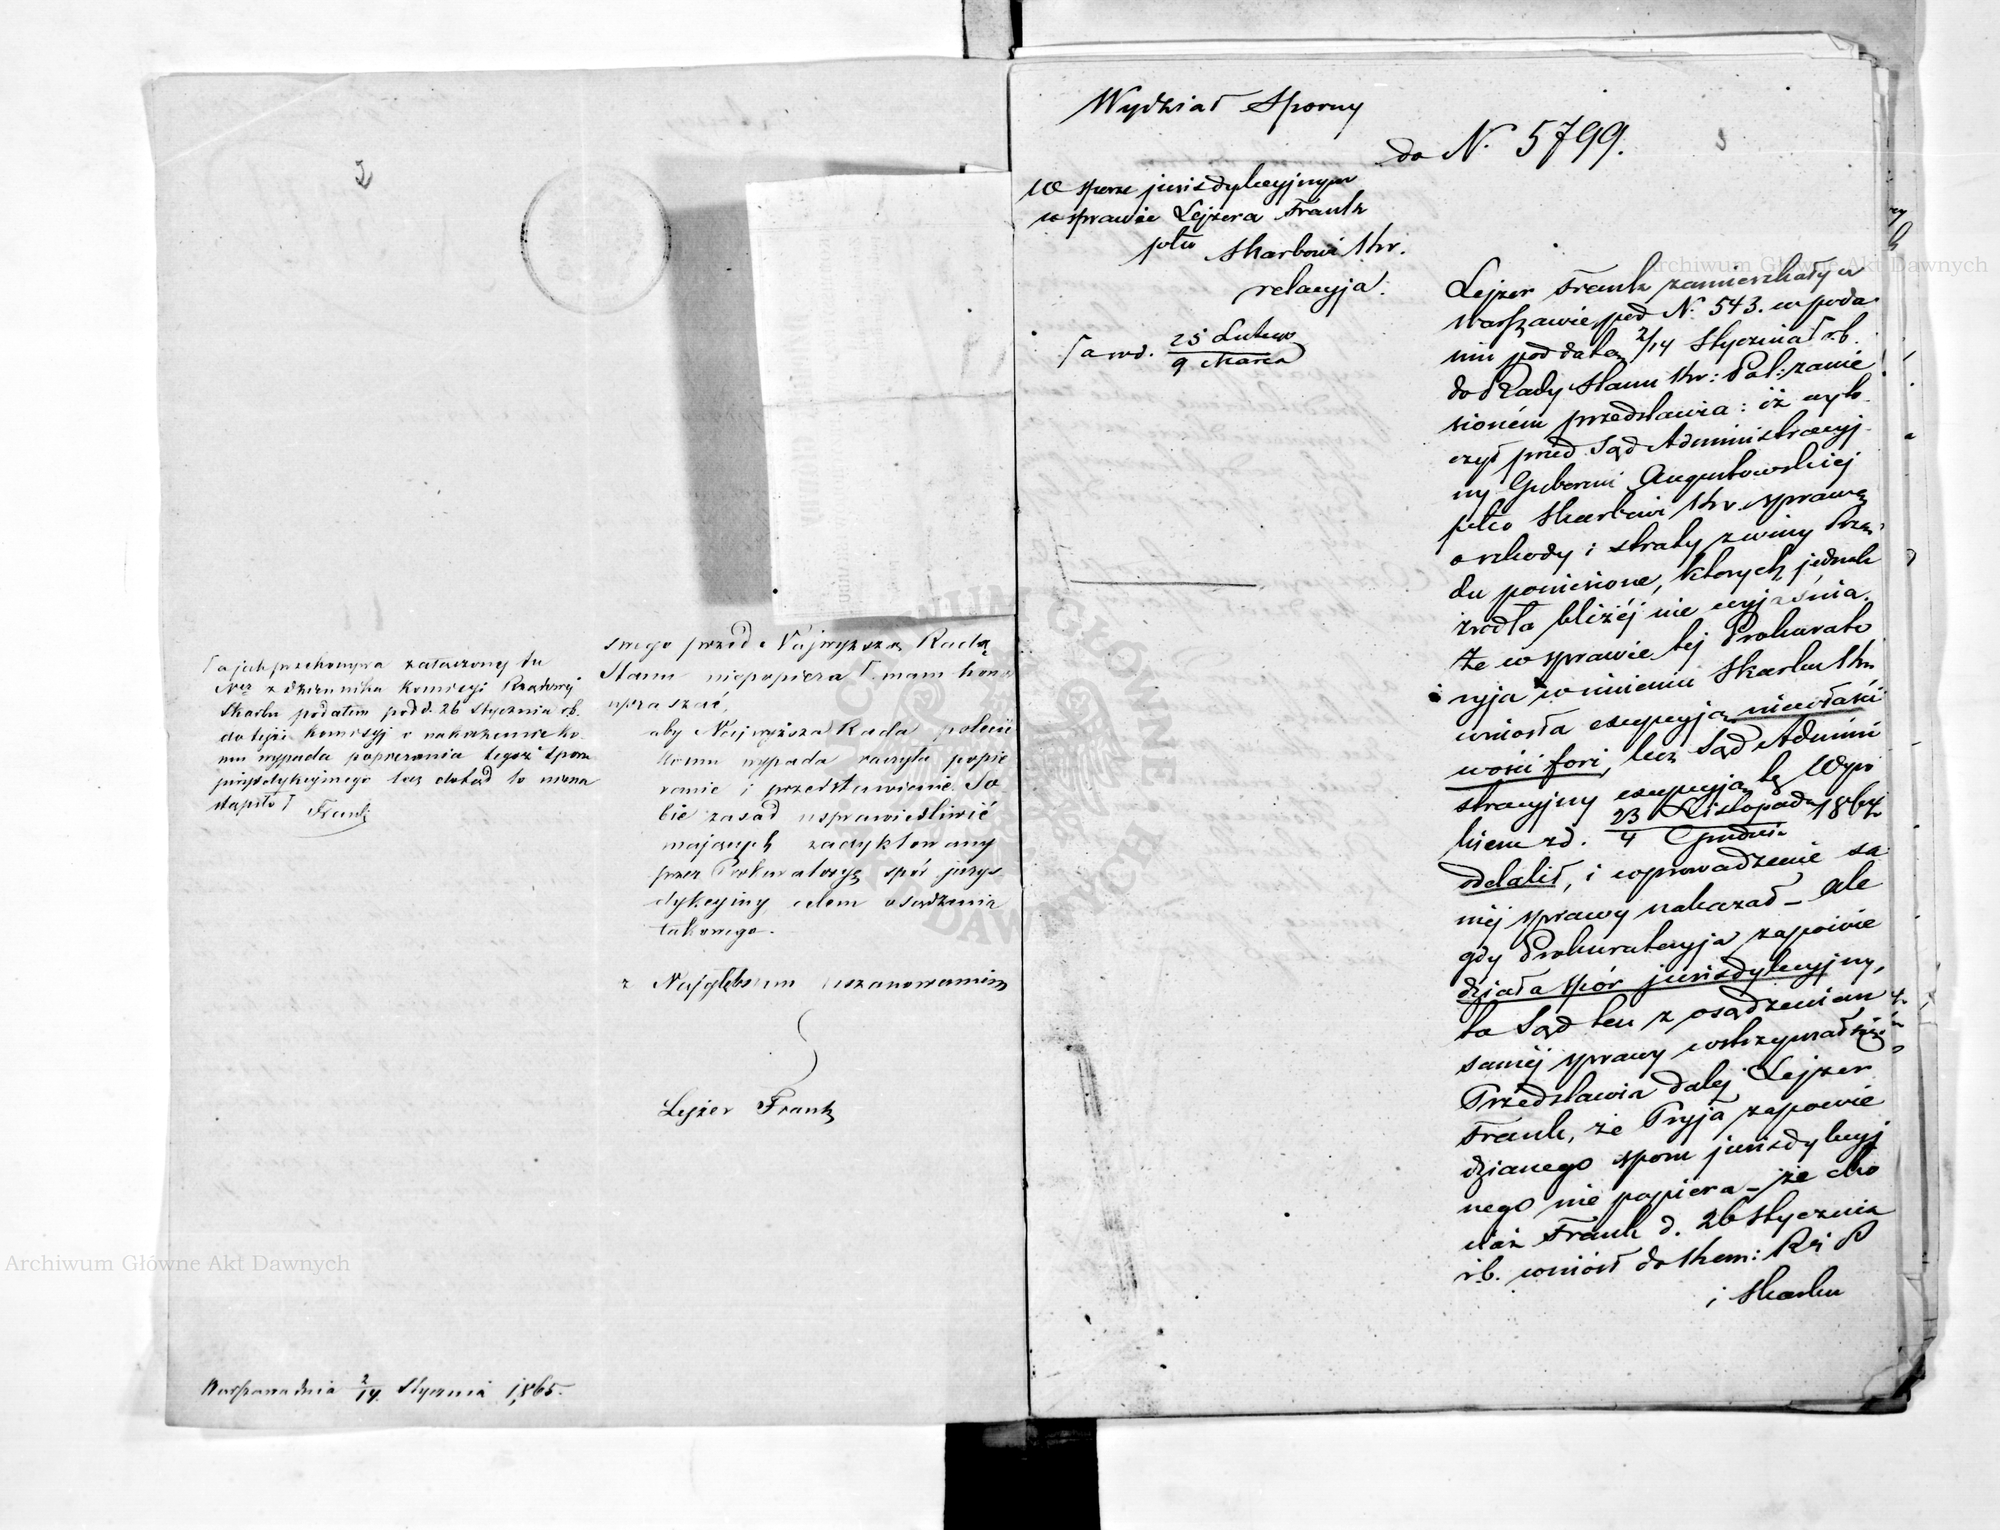 2
⌈ a jak przekonywa załączony tu
Nrz z dziennika Kommissyi Rządowej
Skarbu podałem pod d. 26 Stycznia rb.
do tejże Kommissyi o nakazanie ko
mu wypada popierania tegoż sporu
jurysdykcyjnego lecz dotąd to niena
stąpiło ⌈
Frank
snego przed Najwyższą Radą
Stanu niepopiera ⌈. mam honor
upraszać,
aby Najwyższa Rada polecić
komu wypada raczyła popie
ranie i przedstawienie So
bie zasad usprawiedliwić
mających zadyktowany
przez Prokuratoryę spór jurys
dykcyjny celem osądzenia
takowego.
z Najgłębszem uszanowaniem
Lejzer Frank
Warszawa dnia 2/14 Stycznia 1865.
Wydział Sporny
do N. 5799.
W sporze jurisdykcyjnym
w sprawie Lejzera Frank
pko Skarbowi Kr.
relacyja.
⌈ a wd. 25 Lutego
9 Marca
Lejzer Frank zamieszkały w
Warszawie pod N. 543. w poda
niu pod datą 2/14 Stycznia ⌈ r.b.
do Rady Stanu Kr: Pol: zanie
sioném przedstawia: iż wyto
czył przed Sąd Administracyj
ny Gubernii Augustowskiej
pko Skarbowi Kr. sprawę
o szkody i straty z winy Rzą
du poniesione, których jednak
źródła bliżéj nie wyjaśnia.
Że w sprawie tej Prokurato
ryja w imieniu Skarbu Kr.
wniosła excepcyją niewłaści
wości fori, lecz Sąd Admini
stracyjny excepcyją tę Wyro
kiem z d. 23 Listopada 1864 r.
4 Grudnia
oddalił, i wprowadzenie sa
méj sprawy nakazał – ale
gdy Prokuratoryja zapowie
działa spór jurisdykcyjny,
to Sąd ten z osądzeniem
saméj sprawy wstrzymał się.
Przedstawia dalej Lejzer
Frank, że Pryja zapowie
dzianego sporu jurisdykcyj
nego nie popiera – że cho
ciaż Frank d. 26 Stycznia
r.b. wniósł do Kom: Rz: P
i Skarbu
Archiwum Główne Akt Dawnych
Archiwum Główne Akt Dawnych
ARCHIWUM GŁÓWNE AKT DAWNYCH